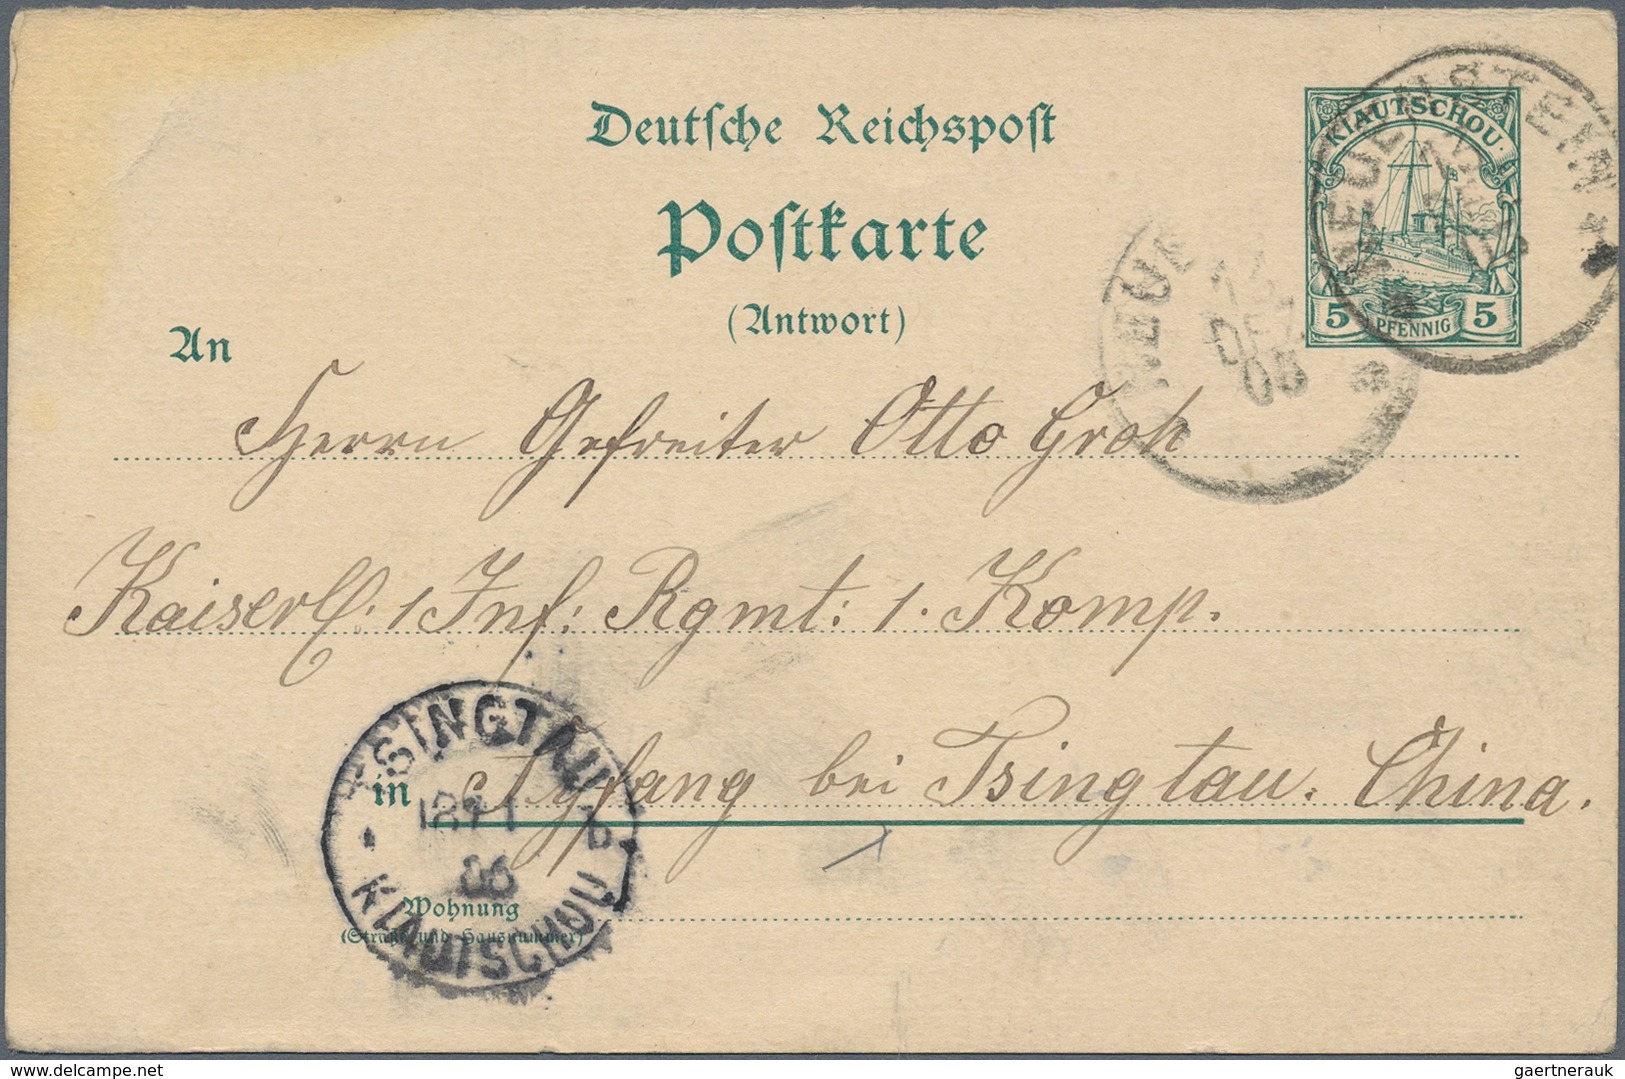 Deutsche Reichspost
Postkarte
(Antwort)
KIAUTSCHOU
5 PFENNIG 5
DEZ
05
An
Herrn Gefreiter Otto Groh
Kaiserl: 1 Inf: Rgmt: 1. Komp.
TSINGTAU
in Syfang bei Tsingtau. China.
b
06
KIAUTSCHOU
Wohnung
(Straße und Hausnummer)
delcampe.net
gaertnerauk